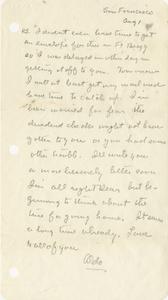 San Francisco
Aug 1
I didn't even have time to get
an envelope for this in Ft Bragg
so I was delayed another day in
getting it off to you. Tomorrow
I will at least get my mail and
have time to catch up. I've
been worried for fear the
dividend checks might not have
gotten to you or you had some
other trouble. I'll write you
a more leisurely letter soon
I'm all right Dear but be-
ginning to think about the
time for going home. It seems
a long time already. Love
to all of you
Dodo